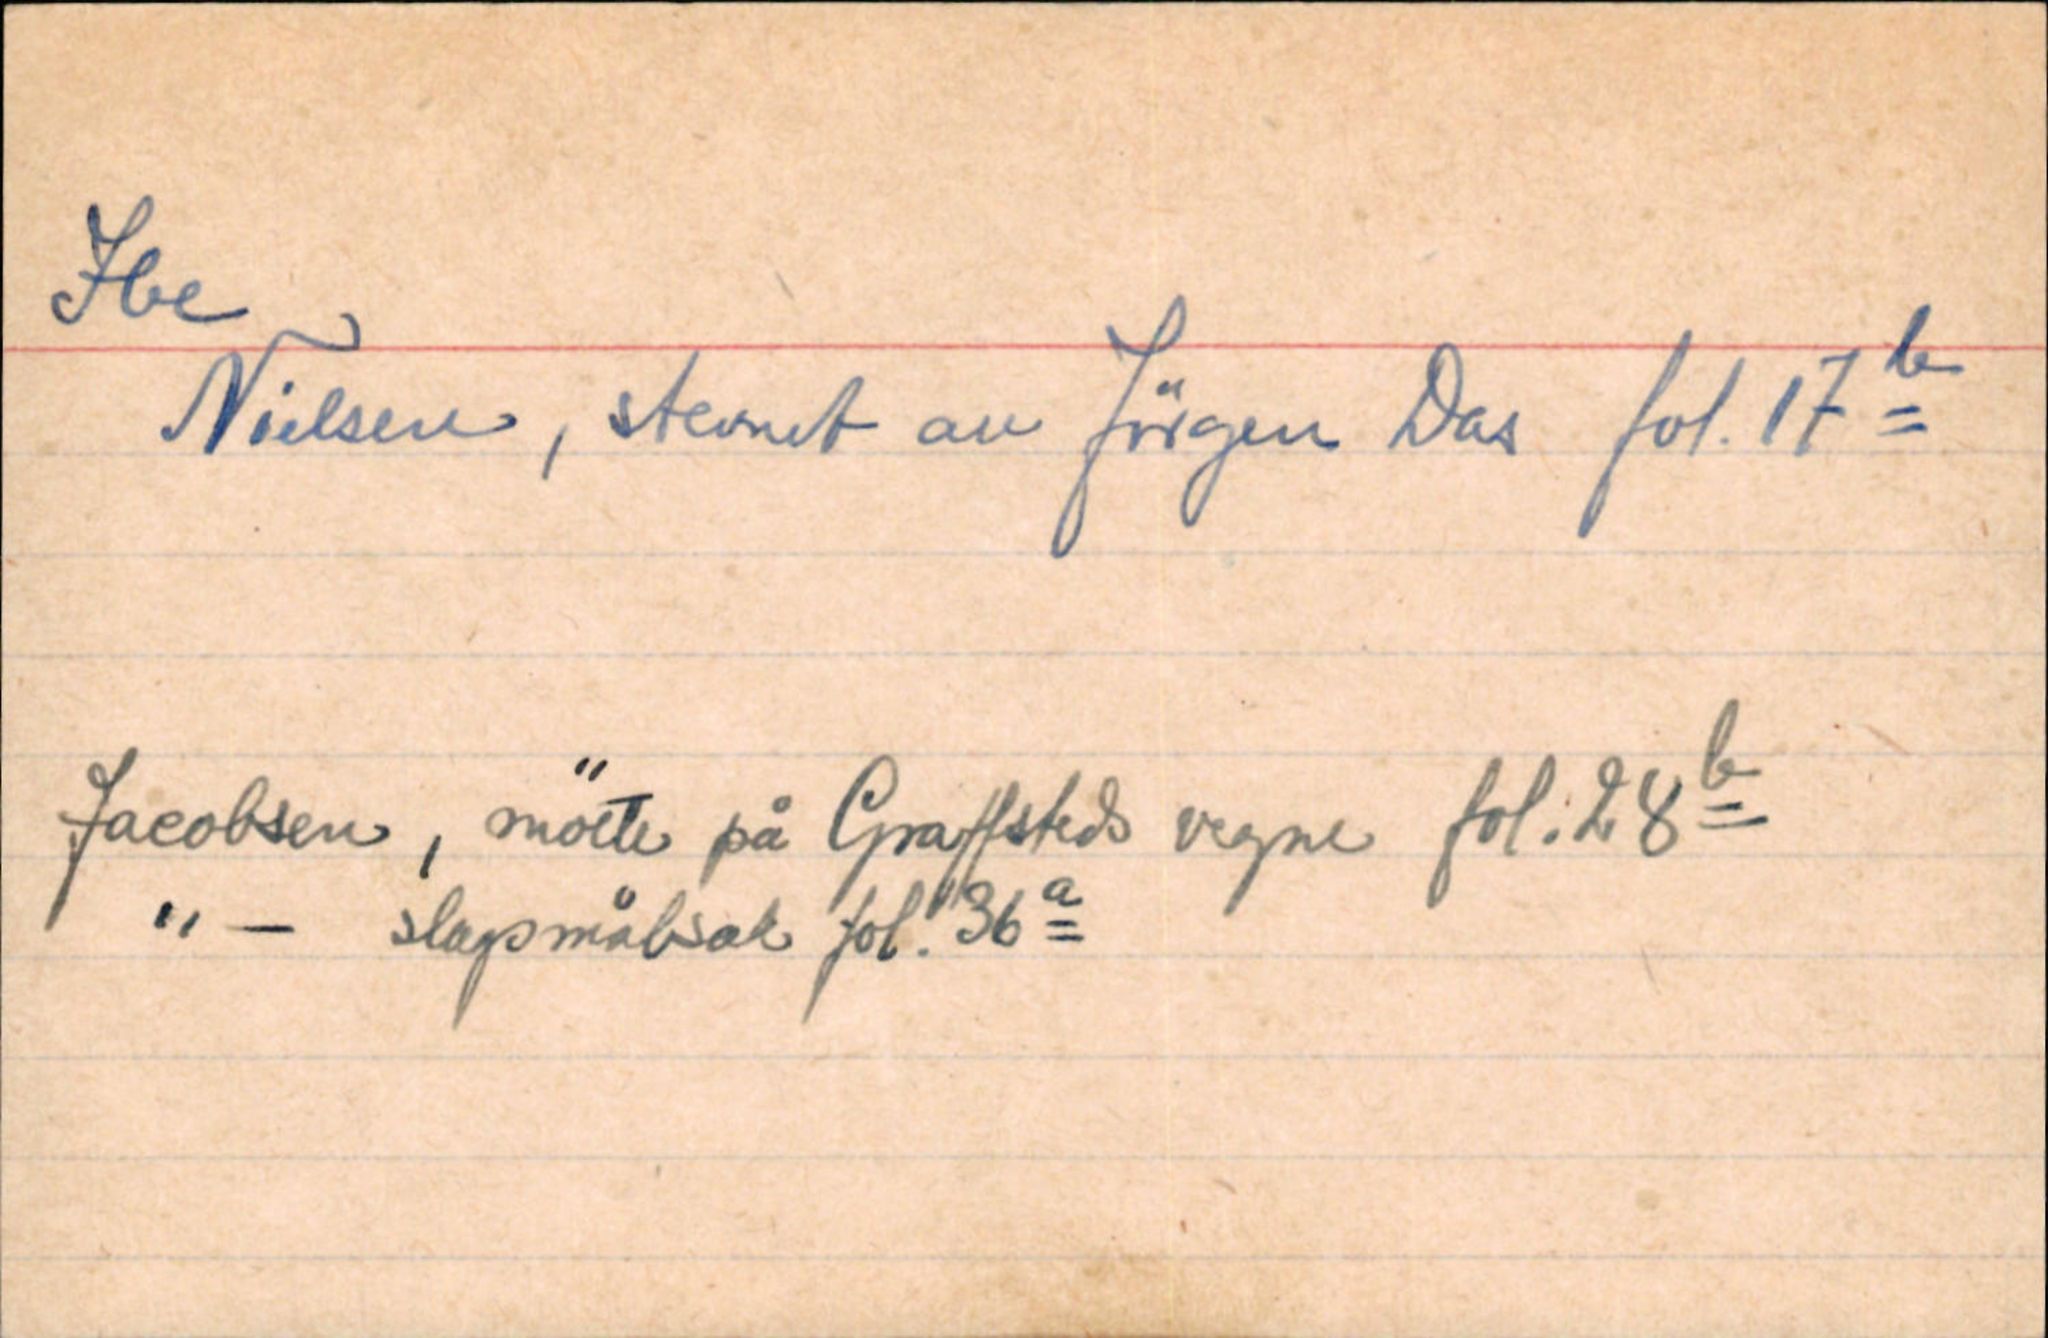 Ibe
Nielsen, stevnet av Jörgen Das fol. 17 b
Jacobsen, mötte på Graffsteds vegne fol. 28 b
" — slagsmålsak fol. 36 a